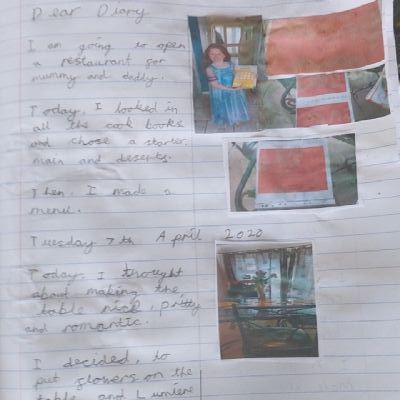 Dear Diary
I am going to open
a restaurant for
mummy and daddy.
Today, I looked in
all the cook books
and chose a starter,
main and deserts.
Then, I made a
menu.
Tuesday 7th April 2020
Today, I thought
about making the
table nice, pritty
and romantic.
I decided, to
put flowers on the
table and Lumiere